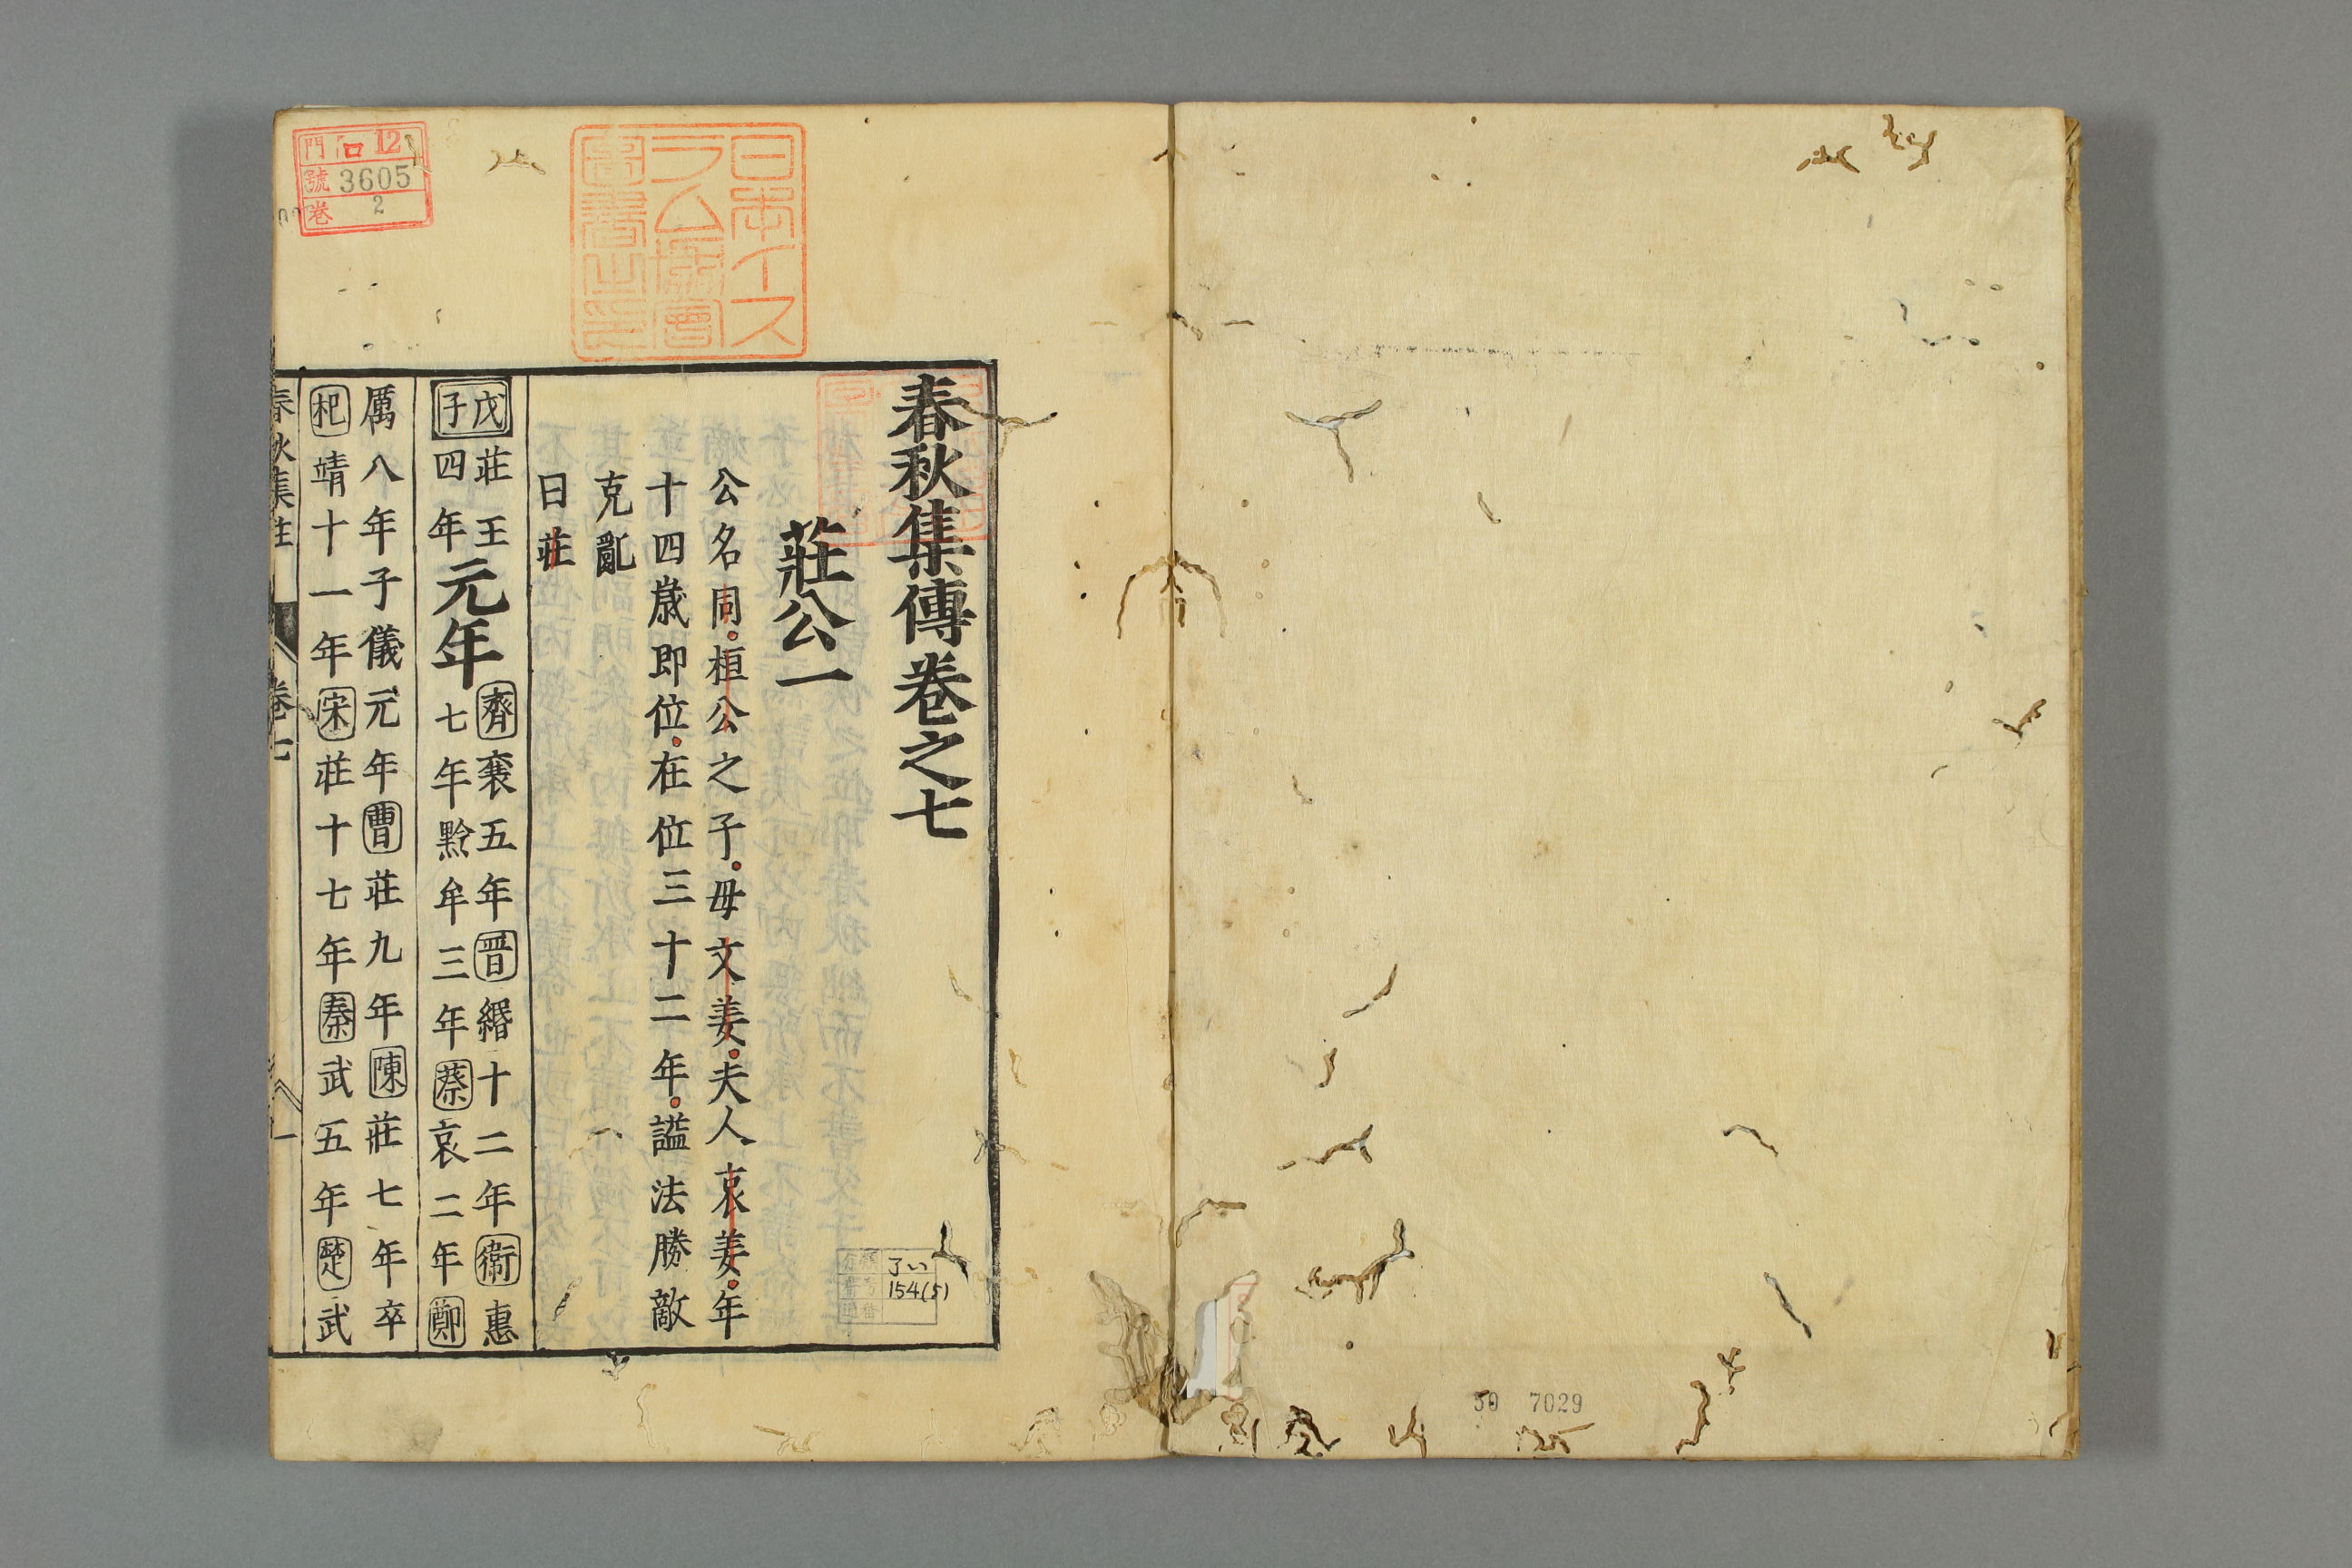 春秋集傳卷之七
莊公一
公名同桓公之子母文姜夫人哀姜年
十四歲即位在位三十二年謚法勝敵
克亂
曰莊
戊子
莊王四年
元年
齊襄五年晋緡十二年衞惠
七年黔牟三年蔡哀二年鄭
厲八年子儀元年曹莊九年陳莊七年卒
杞靖十一年宋莊十七年秦武五年楚武
春秋集註
卷七
一
日本イス
ラム協會
圖書之印
門 ロ 12
號 3605
卷 2
了い
154(5)
50 7029